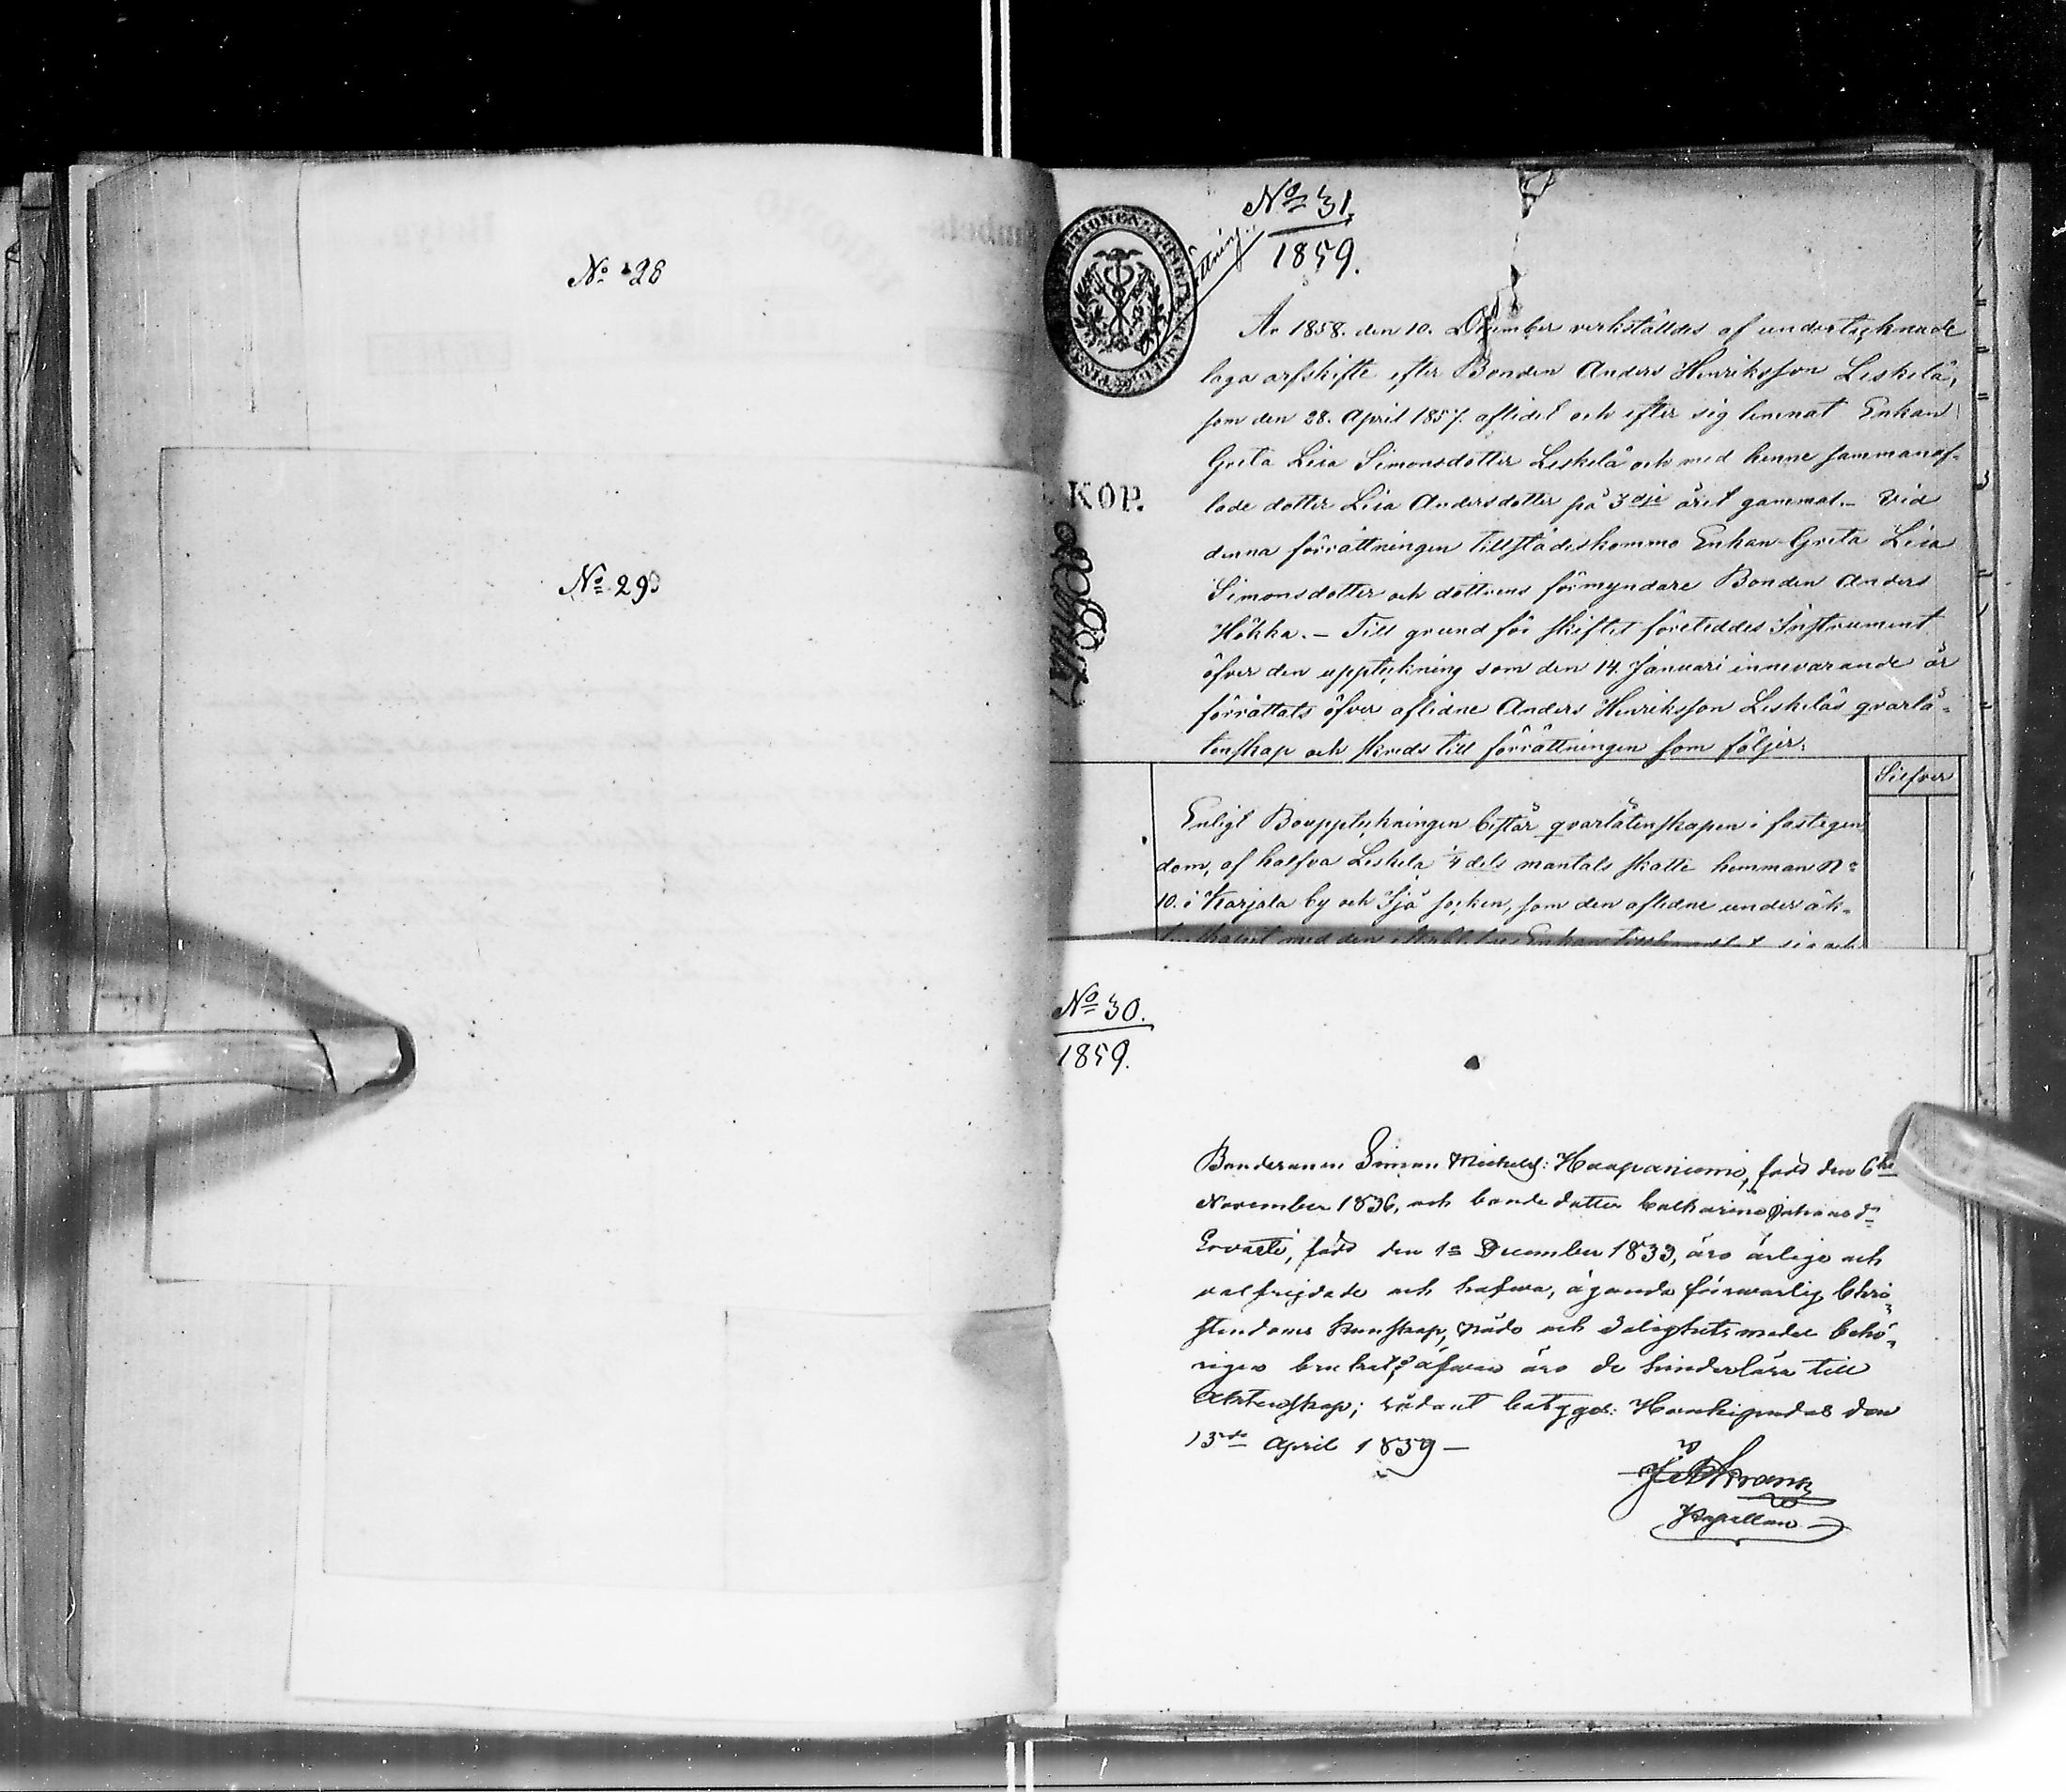 No 28
No 29
No 31.
1859.
År 1858. den 10. December verkställdes af undertecknade
laga arfskifte efter Bonden Anders Henriksson Leskelä,
som den 28. April 1857. aflidit och efter sig lemnat Enkan
Greta Lisa Simonsdotter Leskelä och med henne sammanaf-
lade dotter Lisa Andersdotter på 3dje året gammal. – Vid
denna förrättningen tillstädeskommo Enkan Greta Lisa
Simonsdotter och dottrens förmyndare Bonden Anders
Hökka. – Till grund för skiftet företeddes Instrument
öfver den uppteckning som den 14. Januari innevarande år
förrättats öfver aflidne Anders Henriksson Leskeläs qvarlå-
tenskap och skreds till förrättningen som följer.
KOP.
Silfver
Enligt Bouppteckningen består qvarlåtenskapen i fastegen
dom, af halfva Leskelä 1/4 dels mantals skatte hemman No
10. i Karjala by och Ijå socken, som den aflidne under äk-
tenskapet med den Enkan sig och
No 30.
1859.
Bondesonen Simon Michelss: Haapaniemi, född den 6te
November 1836, och bonde dotter Catharina Johansdr
Ervasti, född den 1a December 1833, äro ärlige och
välfrejdade och hafva, ägande försvarlig Chri-
stendoms kunskap, nåde och salighets medel behö-
rigen brukat, äfven äro de hinderlösa till
Äktenskap; sådant betygas: Haukipudas den
13de April 1859 –
Kapellan